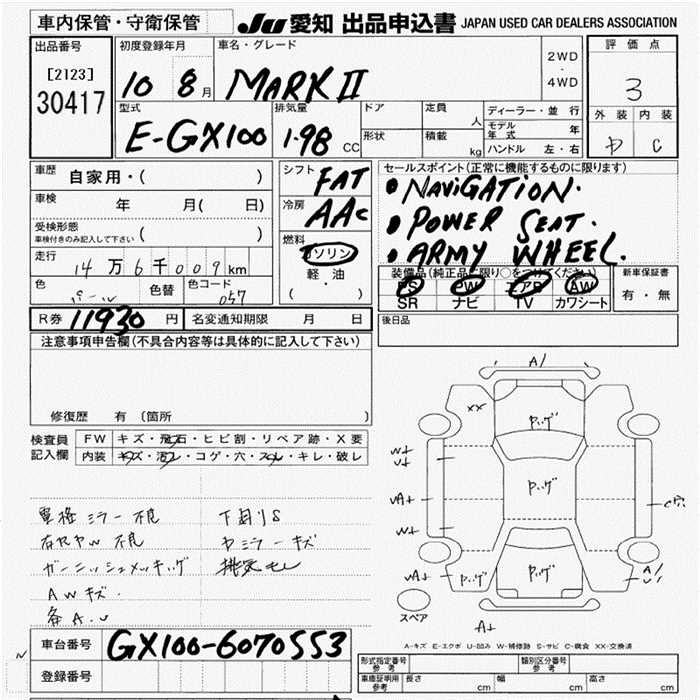 車内保管・守衛保管
JU 愛知 出品申込書 JAPAN USED CAR DEALERS ASSOCIATION
出品番号
[2123]
30417
初度登録年月
10 8月
車名・グレード
MARK II
2WD
・
4WD
評価点
3
外装 内装
C
型式
E-GX100
排気量
1.98 CC
ドア
形状
定員 人
積載 kg
ディーラー・並行
モデル年式 年
ハンドル 左・右
車歴 自家用・( )
車検 年 月( 日)
受検形態
車検付きのみ記入して下さい ( )
走行
14万6千009km
色 パール
色替
色コード
057
シフト
FAT
冷房
AAC
燃料
ガソリン
軽油
( ・ )
セールスポイント(正常に機能するものに限ります)
• NAViGATiON.
• POWER SEAT.
• ARMY WHEEL.
装備品(純正品に限り○をつけてください)
PS PW エアB AW
SR ナビ TV カワシート
新車保証書
有・無
R券 11930 円
名変通知期限 月 日
後日品
注意事項申告欄(不具合内容等は具体的に記入して下さい)
修復歴 有 (箇所
検査員
記入欄
FW キズ・飛石・ヒビ割・リペア跡・X要
内装 キズ・汚レ・コゲ・穴・スレ・キレ・破レ
ミラー不良
不良
ガーニッシュメッキング
AWキズ.
各A.U
下廻りS
ミラーキズ
排気モレ
A/
XX
Pッゲ
Pッゲ
Pッゲ
Pッゲ
W↓
U↓
UA↓
W↓
UA↓
C穴
A/
U/
A↓
スペア
A-キズ E-エクボ U-凹み W-補修跡 S-サビ C-腐食 XX-交換済
車台番号 GX100-6070553
登録番号
形式指定番号
参考
類別区分番号
参考
車庫証明用
参考
長さ cm
幅 cm
高さ cm